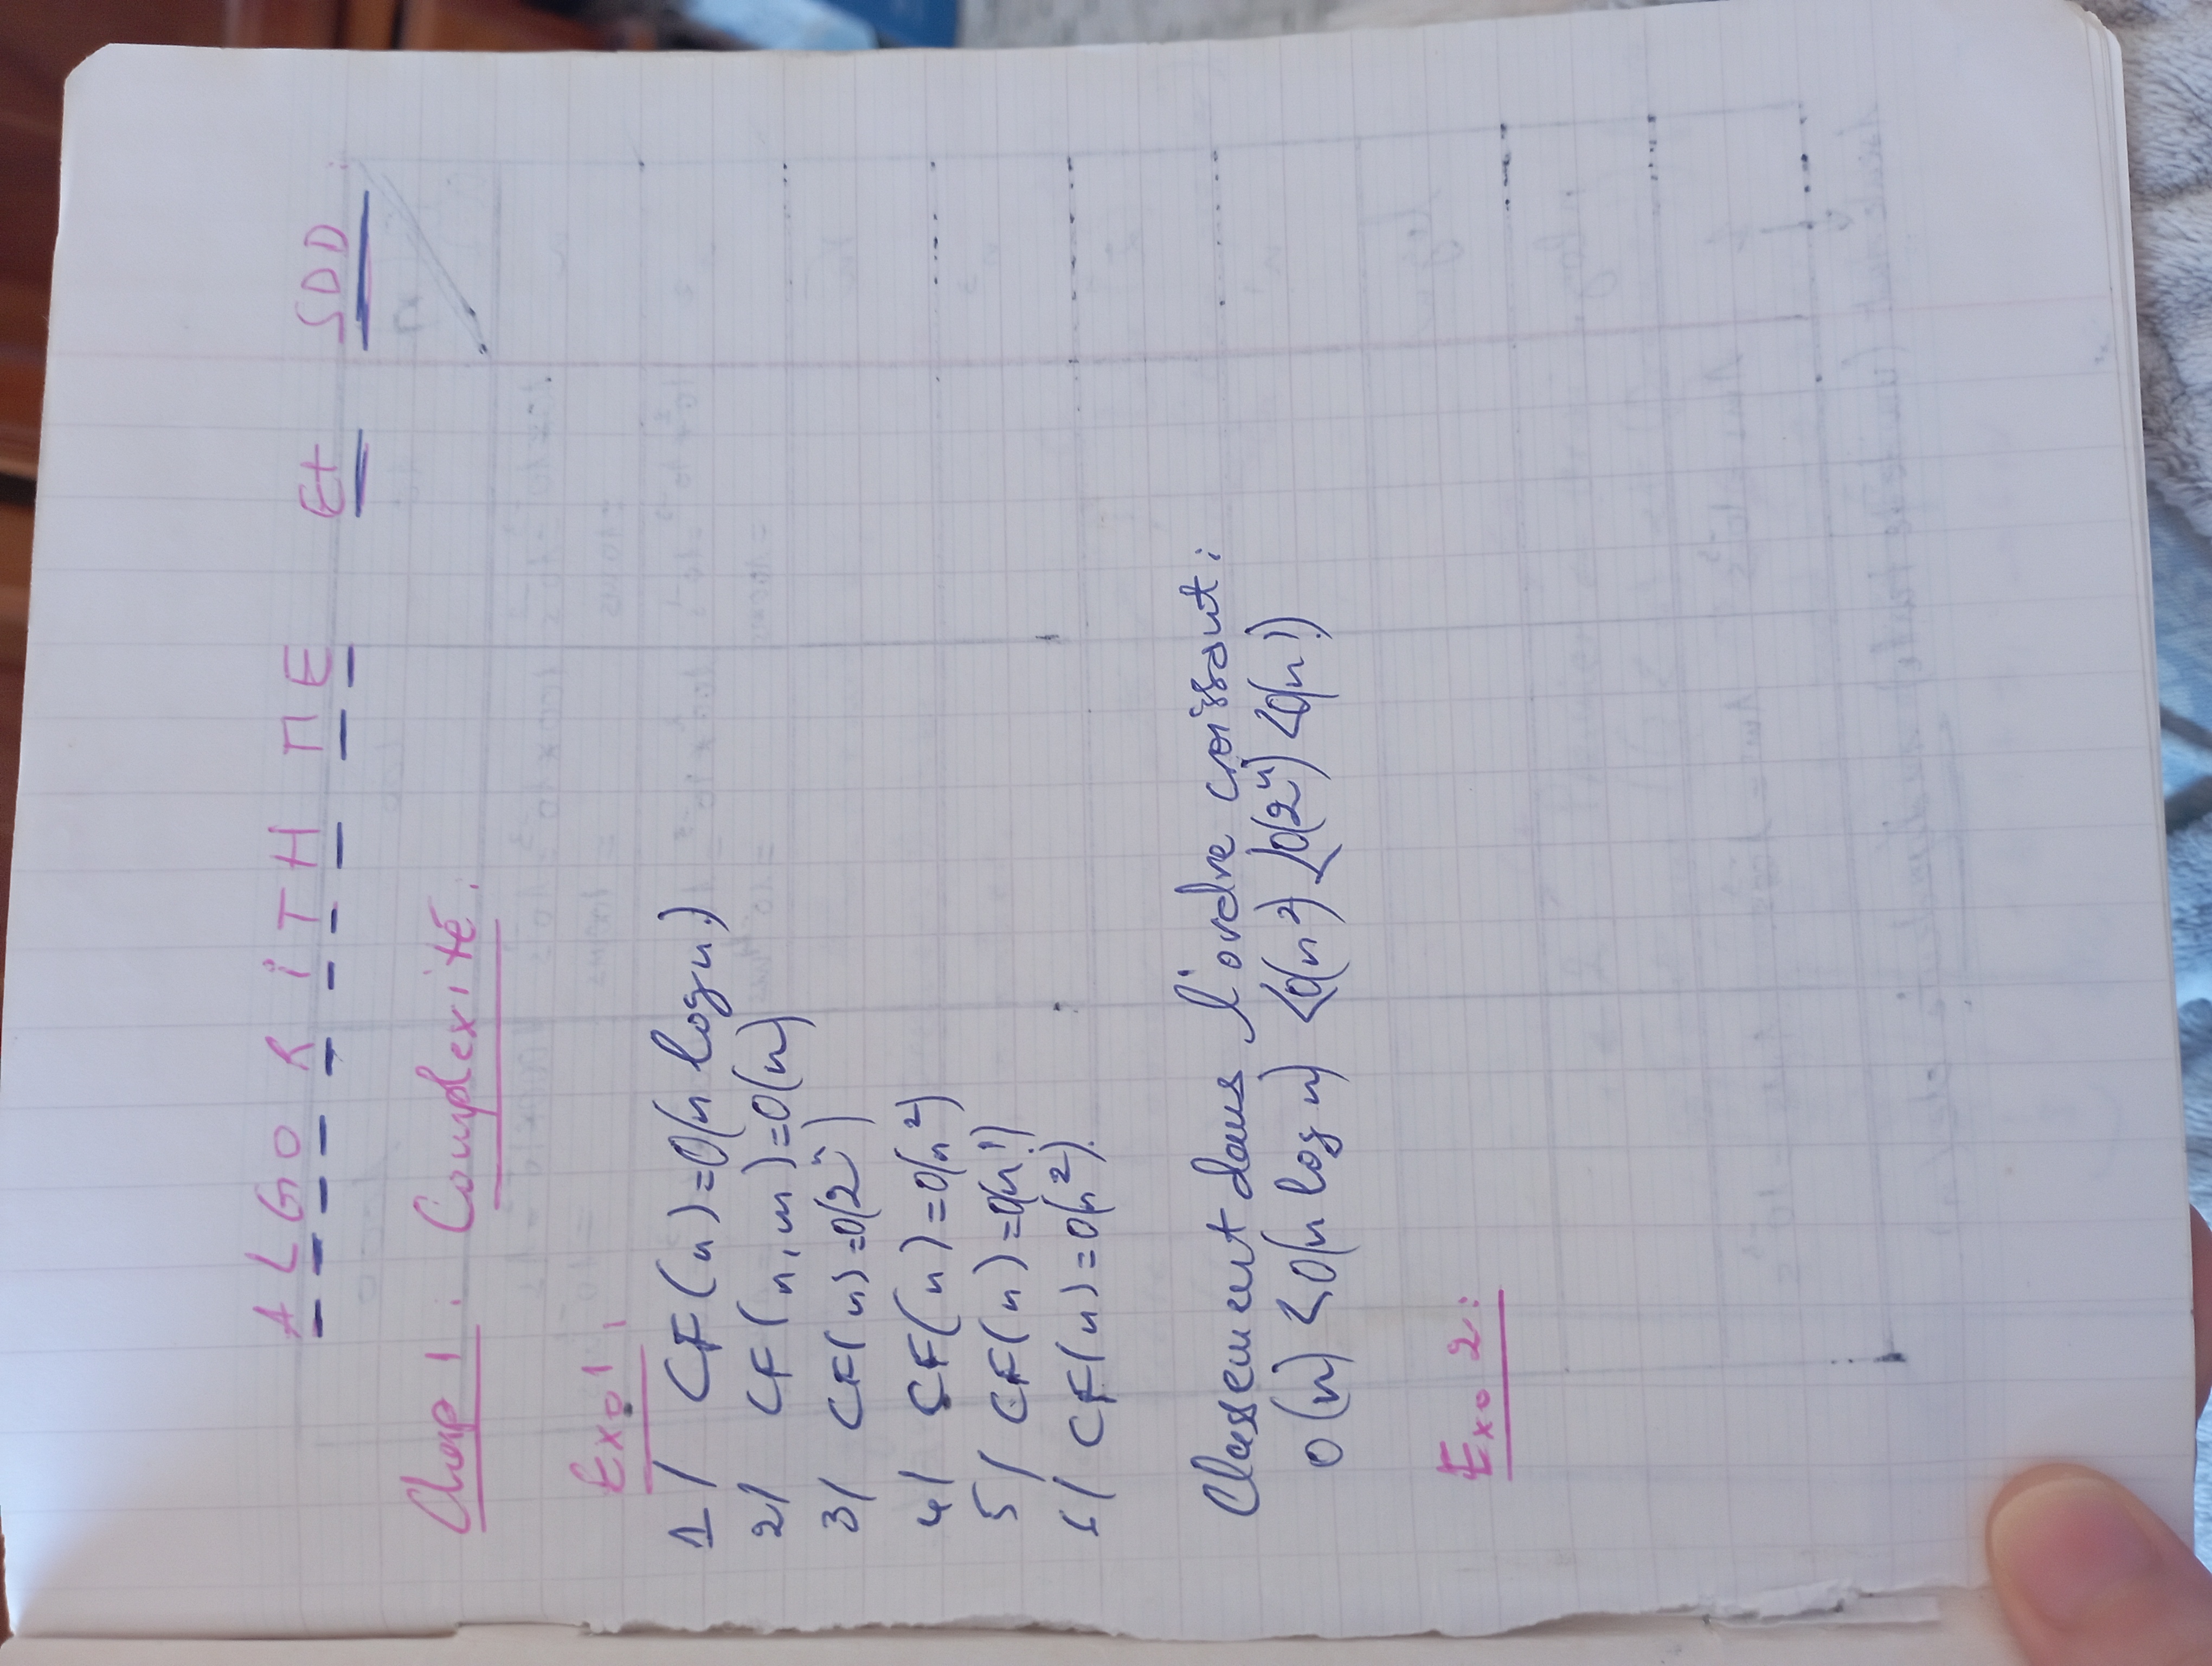 ALGORiTHME Et SDD :
Chap 1 : Complexité.
Exo 1 :
1/ CF(n)=O(n log n.)
2/ CF(n,m)=O(n)
3/ CF(n)=O(2^n)
4/ CF(n)=O(n²)
5/ CF(n)=O(n!)
6/ CF(n)=O(n²).
Classement dans l'ordre croissant :
O(n) < O(n log n) < O(n²) < O(2^n) < O(n!)
Exo 2 :